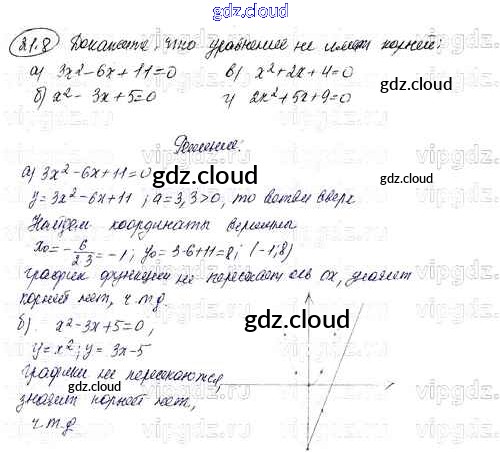 gdz.cloud
21.8 Докажите, что уравнение не имеет корней:
а) 3x² - 6x + 11 = 0 в) x² + 2x + 4 = 0
б) x² - 3x + 5 = 0 г) 2x² + 5x + 9 = 0
gdz.cloud
Решение.
а) 3x² - 6x + 11 = 0
gdz.cloud
y = 3x² - 6x + 11; a = 3, 3 > 0, то ветви вверх
Найдем координаты вершины
x₀ = - 6/2·3 = -1; y₀ = 3-6+11 = 8; (-1; 8)
gdz.cloud
график функции не пересекает ось ox, значит
корней нет, ч.т.д.
б) x² - 3x + 5 = 0,
gdz.cloud
y = x²; y = 3x - 5
графики не пересекаются,
значит корней нет,
ч.т.д.
gdz.cloud